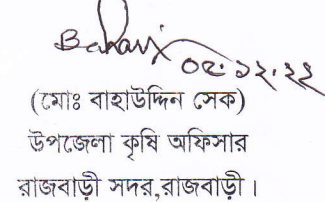 ০৫.১২.২২
(মোঃ বাহাউদ্দিন সেক)
উপজেলা কৃষি অফিসার
রাজবাড়ী সদর,রাজবাড়ী।